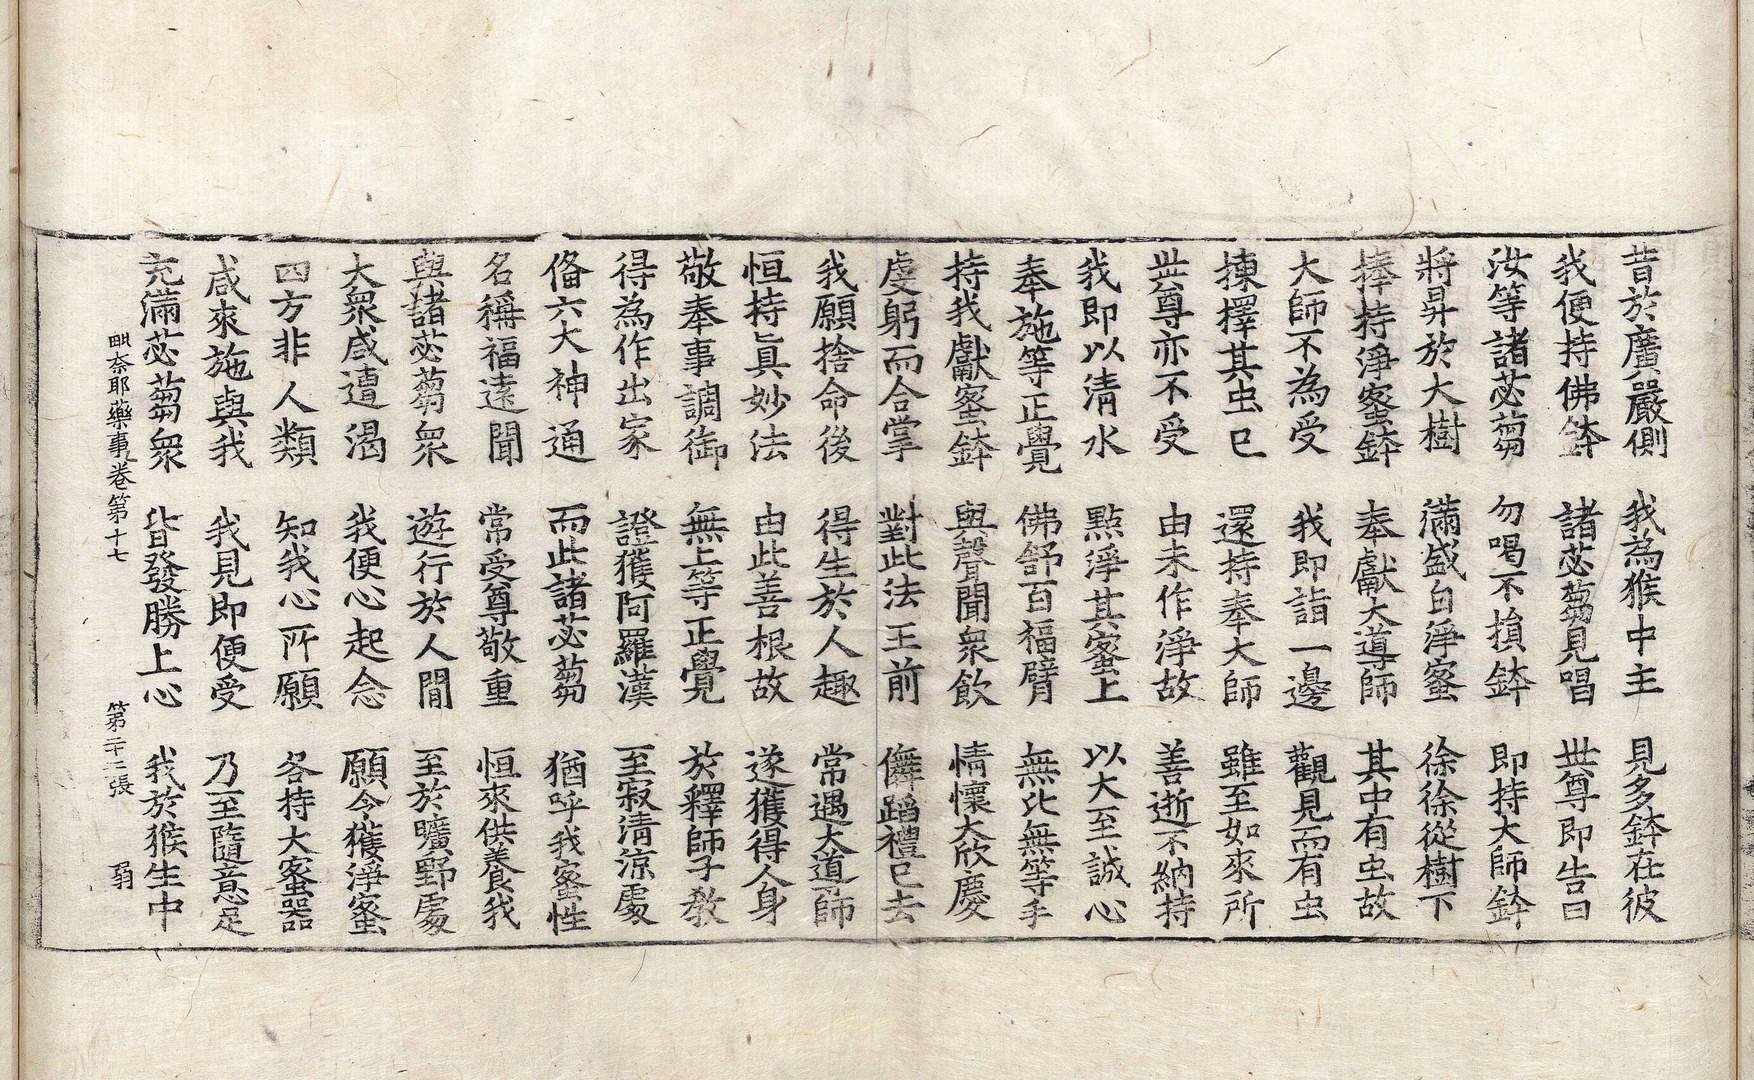 昔於廣嚴側 我為猴中主 見多鉢在彼
我便持佛鉢 諸苾芻見唱 世尊即告曰
汝等諸苾芻 勿喝不損鉢 即持大師鉢
將昇於大樹 滿盛白淨蜜 徐徐從樹下
捧持淨蜜鉢 奉獻大導師 其中有虫故
大師不為受 我即詣一邊 觀見而有虫
揀擇其虫已 還持奉大師 雖至如來所
世尊亦不受 由未作淨故 善逝不納持
我即以清水 點淨其蜜上 以大至誠心
奉施等正覺 佛舒百福臂 無比無等手
持我獻蜜鉢 與聲聞眾飲 情懷大欣慶
虔躬而合掌 對此法王前 儛蹈禮已去
我願捨命後 得生於人趣 常遇大導師
恒持真妙法 由此善根故 遂獲得人身
敬奉事調御 無上等正覺 於釋師子教
得為作出家 證獲阿羅漢 至寂清涼處
俻六大神通 而此諸苾芻 猶呼我蜜性
名稱福遠聞 常受尊敬重 恒來供養我
與諸苾芻眾 遊行於人間 至於曠野處
大眾咸遭渴 我便心起念 願今獲淨蜜
四方非人類 知我心所願 各持大蜜器
咸來施與我 我見即便受 乃至隨意足
充滿苾芻眾 皆發勝上心 我於猴生中
毗奈耶藥事卷第十七 第二十二張